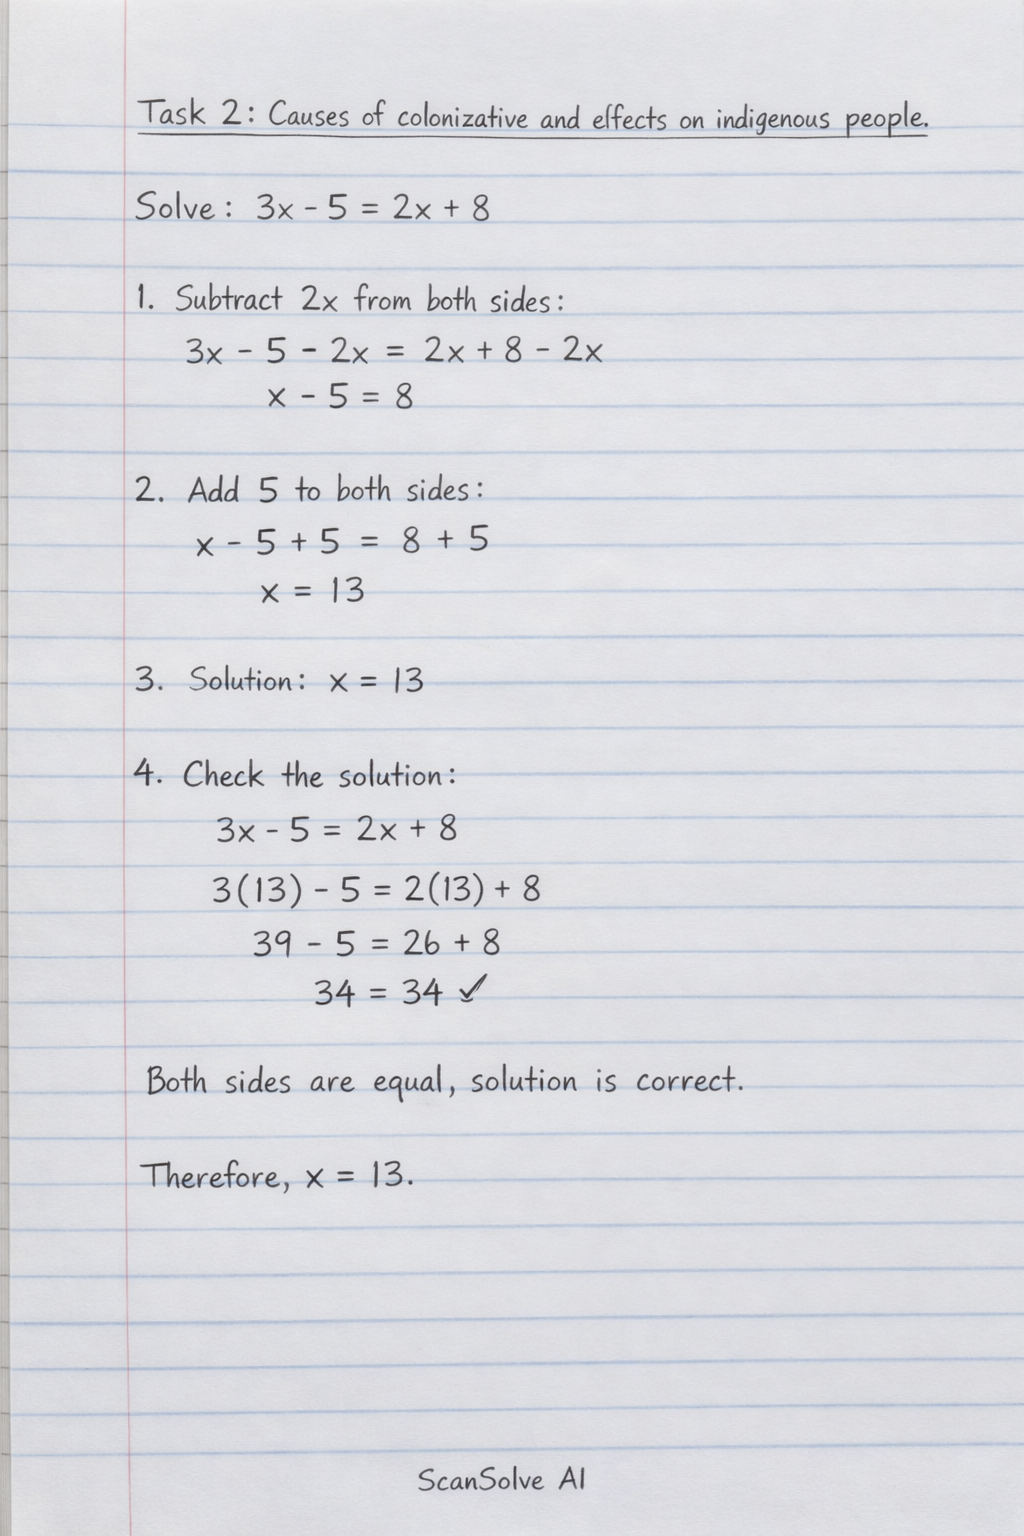 Task 2: Causes of colonizative and effects on indigenous people.
Solve: 3x - 5 = 2x + 8
1. Subtract 2x from both sides:
3x - 5 - 2x = 2x + 8 - 2x
x - 5 = 8
2. Add 5 to both sides:
x - 5 + 5 = 8 + 5
x = 13
3. Solution: x = 13
4. Check the solution:
3x - 5 = 2x + 8
3(13) - 5 = 2(13) + 8
39 - 5 = 26 + 8
34 = 34 ✓
Both sides are equal, solution is correct.
Therefore, x = 13.
ScanSolve AI